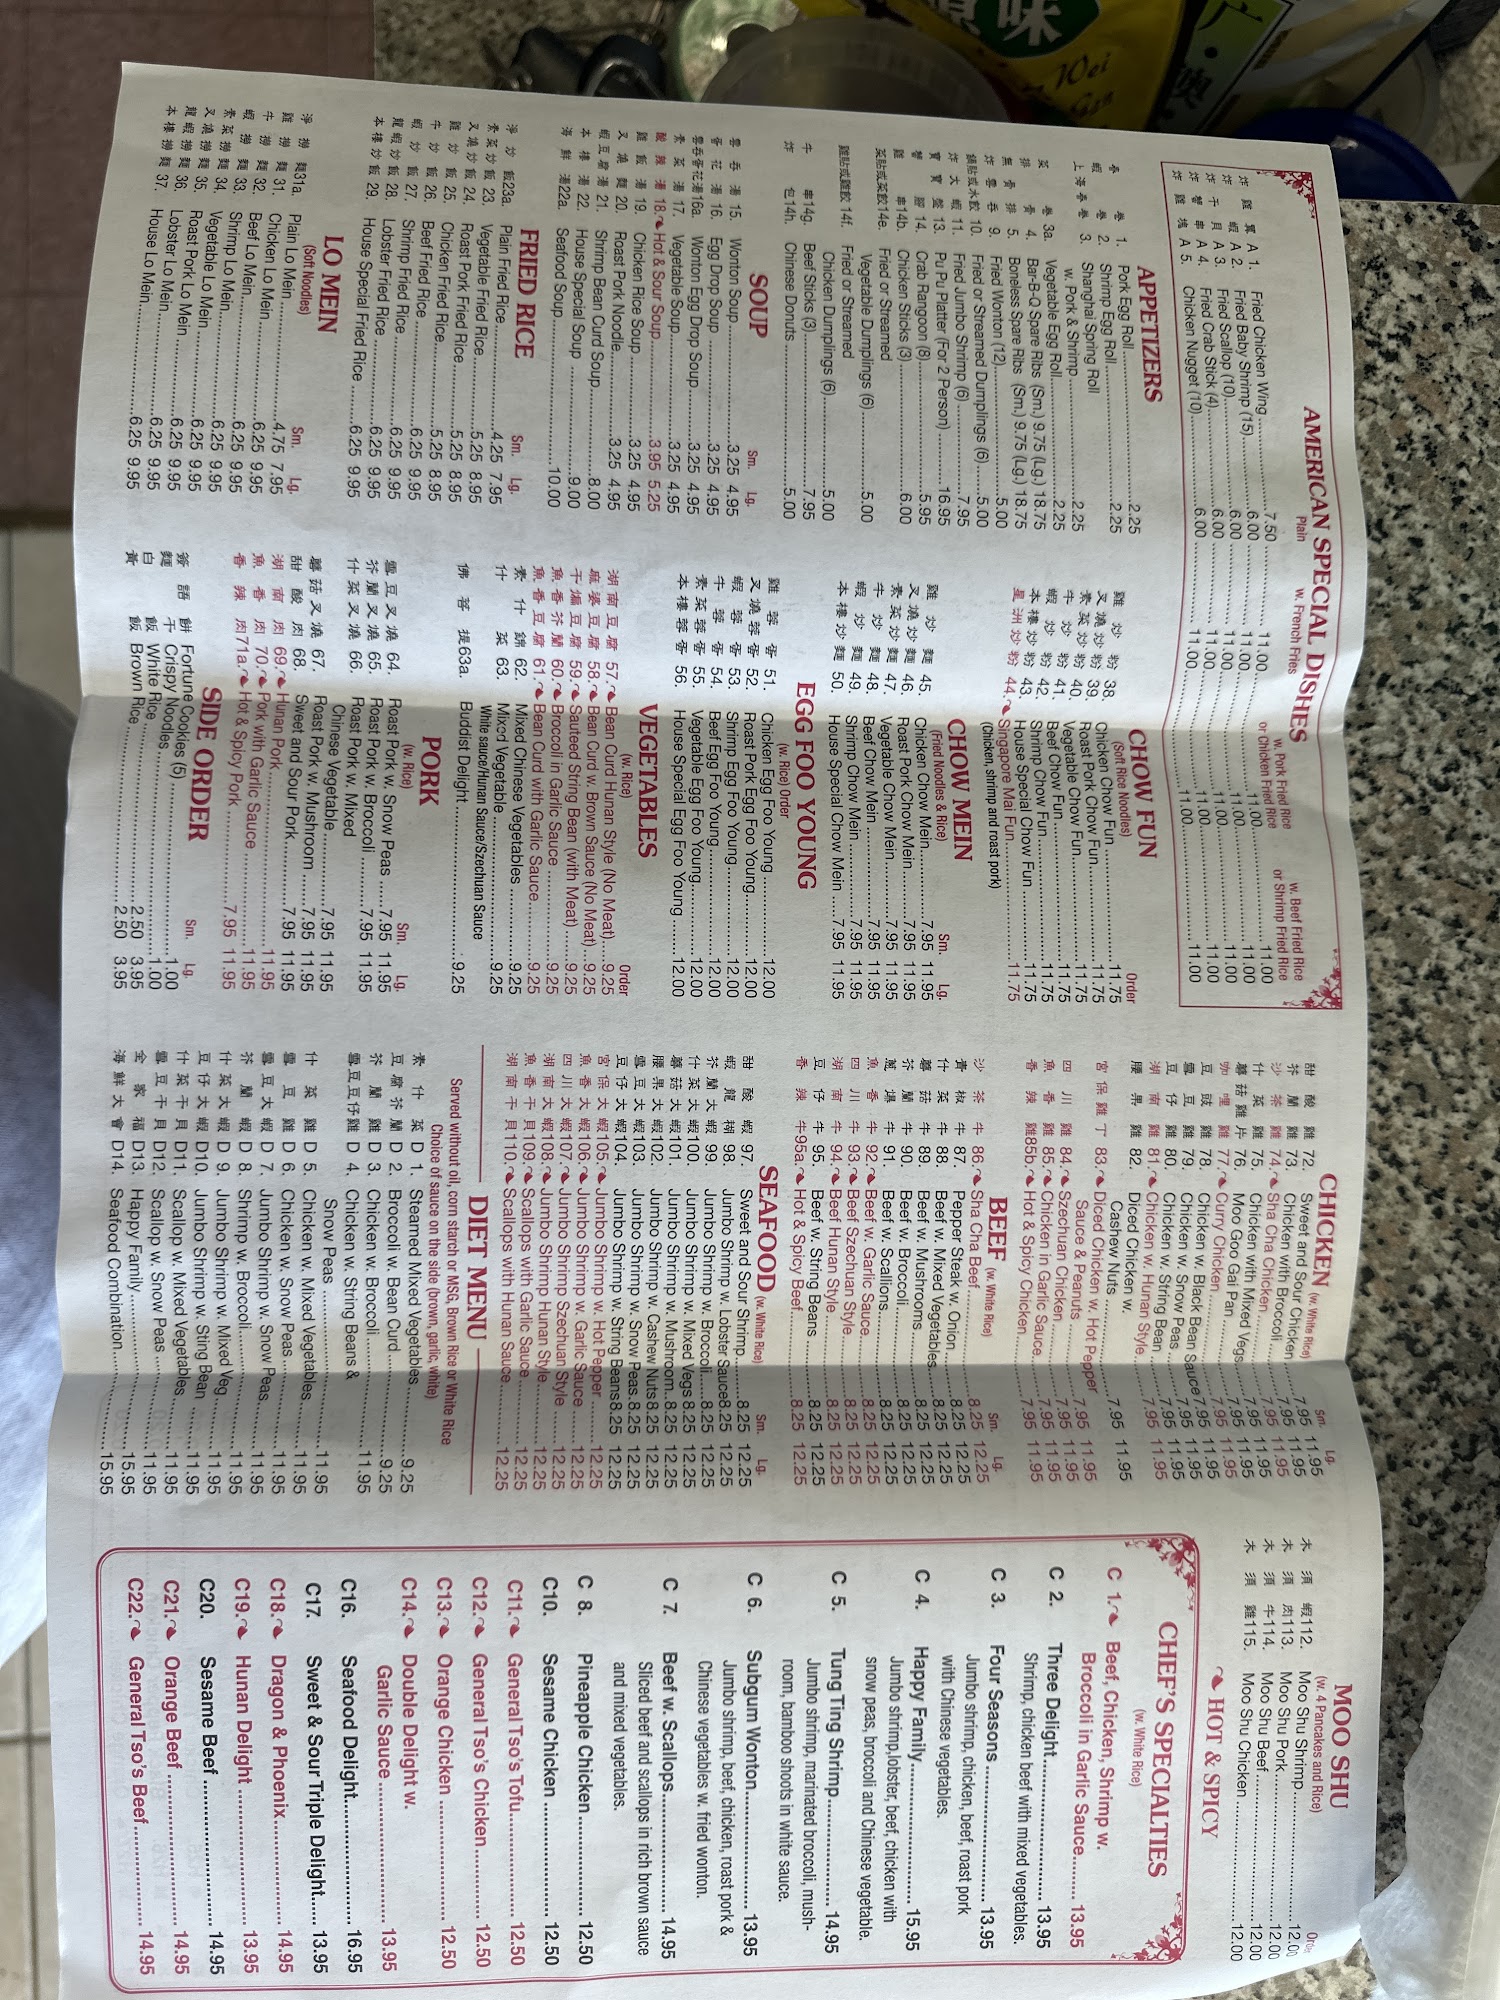 AMERICAN SPECIAL DISHES
Plain
w. French Fries
w. Pork Fried Rice
or Chicken Fried Rice
w. Beef Fried Rice
or Shrimp Fried Rice
炸 雞 翼 A 1. Fried Chicken Wing 7.50 11.00 11.00 11.00
炸 蝦 A 2. Fried Baby Shrimp (15) 6.00 11.00 11.00 11.00
炸 干 貝 A 3. Fried Scallop (10) 6.00 11.00 11.00 11.00
炸 蟹 串 A 4. Fried Crab Stick (4) 6.00 11.00 11.00 11.00
炸 雞 塊 A 5. Chicken Nugget (10) 6.00 11.00 11.00 11.00
APPETIZERS
春 卷 1. Pork Egg Roll 2.25
蝦 卷 2. Shrimp Egg Roll 2.25
上 海 春 卷 3. Shanghai Spring Roll
w. Pork & Shrimp 2.25
菜 卷 3a. Vegetable Egg Roll 2.25
排 骨 4. Bar-B-Q Spare Ribs (Sm.) 9.75 (Lg.) 18.75
無 骨 排 5. Boneless Spare Ribs (Sm.) 9.75 (Lg.) 18.75
炸 雲 吞 9. Fried Wonton (12) 5.00
鍋貼或水餃 10. Fried or Streamed Dumplings (6) 5.00
炸 大 蝦 11. Fried Jumbo Shrimp (6) 7.95
寶 寶 盤 13. Pu Pu Platter (For 2 Person) 16.95
蟹 角 14. Crab Rangoon (8) 5.95
雞 串14b. Chicken Sticks (3) 6.00
菜貼或菜餃14e. Fried or Streamed
Vegetable Dumplings (6) 5.00
雞貼或雞餃 14f. Fried or Streamed
Chicken Dumplings (6) 5.00
牛 串14g. Beef Sticks (3) 7.95
炸 包14h. Chinese Donuts 5.00
SOUP
Sm. Lg.
雲 吞 湯 15. Wonton Soup 3.25 4.95
蛋 花 湯 16. Egg Drop Soup 3.25 4.95
雲吞蛋花湯16a. Wonton Egg Drop Soup 3.25 4.95
素 菜 湯 17. Vegetable Soup 3.25 4.95
酸 辣 湯 18. Hot & Sour Soup 3.95 5.25
雞 飯 湯 19. Chicken Rice Soup 3.25 4.95
叉 燒 麵 20. Roast Pork Noodle 3.25 4.95
蝦 豆 腐 湯 21. Shrimp Bean Curd Soup 8.00
本 樓 湯 22. House Special Soup 9.00
海 鮮 湯22a. Seafood Soup 10.00
FRIED RICE
Sm. Lg.
淨 炒 飯23a. Plain Fried Rice 4.25 7.95
素 菜 炒 飯 23. Vegetable Fried Rice 5.25 8.95
叉 燒 炒 飯 24. Roast Pork Fried Rice 5.25 8.95
雞 炒 飯 25. Chicken Fried Rice 5.25 8.95
牛 炒 飯 26. Beef Fried Rice 5.25 8.95
蝦 炒 飯 27. Shrimp Fried Rice 6.25 9.95
龍 蝦 炒 飯 28. Lobster Fried Rice 6.25 9.95
本 樓 炒 飯 29. House Special Fried Rice 6.25 9.95
LO MEIN
(Soft Noodles)
Sm. Lg.
淨 撈 麵31a. Plain Lo Mein 4.75 7.95
雞 撈 麵 31. Chicken Lo Mein 6.25 9.95
牛 撈 麵 32. Beef Lo Mein 6.25 9.95
蝦 撈 麵 33. Shrimp Lo Mein 6.25 9.95
素 菜 撈 麵 34. Vegetable Lo Mein 6.25 9.95
叉 燒 撈 麵 35. Roast Pork Lo Mein 6.25 9.95
龍 蝦 撈 麵 36. Lobster Lo Mein 6.25 9.95
本 樓 撈 麵 37. House Lo Mein 6.25 9.95
CHOW FUN
(Soft Rice Noodles)
Order
雞 炒 粉 38. Chicken Chow Fun 11.75
叉 燒 炒 粉 39. Roast Pork Chow Fun 11.75
素 菜 炒 粉 40. Vegetable Chow Fun 11.75
牛 炒 粉 41. Beef Chow Fun 11.75
蝦 炒 粉 42. Shrimp Chow Fun 11.75
本 樓 炒 粉 43. House Special Chow Fun 11.75
星 洲 炒 粉 44. Singapore Mai Fun 11.75
(Chicken, shrimp and roast pork)
CHOW MEIN
(Fried Noodles & Rice)
Sm. Lg.
雞 炒 麵 45. Chicken Chow Mein 7.95 11.95
叉 燒 炒 麵 46. Roast Pork Chow Mein 7.95 11.95
素 菜 炒 麵 47. Vegetable Chow Mein 7.95 11.95
牛 炒 麵 48. Beef Chow Mein 7.95 11.95
蝦 炒 麵 49. Shrimp Chow Mein 7.95 11.95
本 樓 炒 麵 50. House Special Chow Mein 7.95 11.95
EGG FOO YOUNG
(w. Rice) Order
雞 蓉 蛋 51. Chicken Egg Foo Young 12.00
叉 燒 蓉 蛋 52. Roast Pork Egg Foo Young 12.00
蝦 蓉 蛋 53. Shrimp Egg Foo Young 12.00
牛 蓉 蛋 54. Beef Egg Foo Young 12.00
素 菜 蓉 蛋 55. Vegetable Egg Foo Young 12.00
本 樓 蓉 蛋 56. House Special Egg Foo Young 12.00
VEGETABLES
(w. Rice)
Order
湖 南 豆 腐 57. Bean Curd Hunan Style (No Meat) 9.25
麻 婆 豆 腐 58. Bean Curd w. Brown Sauce (No Meat) 9.25
干 煸 豆 腐 59. Sauteed String Bean (with Meat) 9.25
魚 香 芥 蘭 60. Broccoli in Garlic Sauce 9.25
魚 香 豆 腐 61. Bean Curd with Garlic Sauce 9.25
素 什 錦 62. Mixed Chinese Vegetables 9.25
什 菜 63. Mixed Vegetable 9.25
White sauce/Hunan Sauce/Szechuan Sauce
佛 菩 提63a. Buddist Delight 9.25
PORK
(w. Rice)
Sm. Lg.
雪 豆 叉 燒 64. Roast Pork w. Snow Peas 7.95 11.95
芥 蘭 叉 燒 65. Roast Pork w. Broccoli 7.95 11.95
什 菜 叉 燒 66. Roast Pork w. Mixed
Chinese Vegetable 7.95 11.95
蘑 菇 叉 燒 67. Roast Pork w. Mushroom 7.95 11.95
甜 酸 肉 68. Sweet and Sour Pork 7.95 11.95
湖 南 肉 69. Hunan Pork 11.95
魚 香 肉 70. Pork with Garlic Sauce 11.95
香 辣 肉71a. Hot & Spicy Pork 7.95 11.95
SIDE ORDER
Sm. Lg.
簽 語 餅 Fortune Cookies (5) 1.00
麵 干 Crispy Noodles 1.00
白 飯 White Rice 2.50 3.95
黃 飯 Brown Rice 2.50 3.95
CHICKEN (w. White Rice)
Sm. Lg.
甜 酸 雞 72. Sweet and Sour Chicken 7.95 11.95
芥 蘭 雞 73. Chicken with Broccoli 7.95 11.95
沙 茶 雞 74. Sha Cha Chicken 7.95 11.95
什 菜 雞 75. Chicken with Mixed Vegs. 7.95 11.95
蘑 菇 雞 片 76. Moo Goo Gai Pan 7.95 11.95
咖 喱 雞 77. Curry Chicken 7.95 11.95
豆 豉 雞 78. Chicken w. Black Bean Sauce 7.95 11.95
雪 豆 雞 79. Chicken w. Snow Peas 7.95 11.95
豆 仔 雞 80. Chicken w. String Bean 7.95 11.95
湖 南 雞 81. Chicken w. Hunan Style 7.95 11.95
腰 果 雞 82. Diced Chicken w.
Cashew Nuts 7.95 11.95
宮 保 雞 丁 83. Diced Chicken w. Hot Pepper
Sauce & Peanuts 7.95 11.95
四 川 雞 84. Szechuan Chicken 7.95 11.95
魚 香 雞 85. Chicken in Garlic Sauce 7.95 11.95
香 辣 雞85b. Hot & Spicy Chicken 7.95 11.95
BEEF (w. White Rice)
Sm. Lg.
沙 茶 牛 86. Sha Cha Beef 8.25 12.25
青 椒 牛 87. Pepper Steak w. Onion 8.25 12.25
什 菜 牛 88. Beef w. Mixed Vegetables 8.25 12.25
蘑 菇 牛 89. Beef w. Mushrooms 8.25 12.25
芥 蘭 牛 90. Beef w. Broccoli 8.25 12.25
蔥 爆 牛 91. Beef w. Scallions 8.25 12.25
魚 香 牛 92. Beef w. Garlic Sauce 8.25 12.25
四 川 牛 93. Beef Szechuan Style 8.25 12.25
湖 南 牛 94. Beef Hunan Style 8.25 12.25
豆 仔 牛 95. Beef w. String Beans 8.25 12.25
香 辣 牛95a. Hot & Spicy Beef 8.25 12.25
SEAFOOD (w. White Rice)
Sm. Lg.
甜 酸 蝦 97. Sweet and Sour Shrimp 8.25 12.25
蝦 龍 糊 98. Jumbo Shrimp w. Lobster Sauce 8.25 12.25
芥 蘭 大 蝦 99. Jumbo Shrimp w. Broccoli 8.25 12.25
什 菜 大 蝦100. Jumbo Shrimp w. Mixed Vegs 8.25 12.25
蘑 菇 大 蝦101. Jumbo Shrimp w. Mushroom 8.25 12.25
腰 果 大 蝦102. Jumbo Shrimp w. Cashew Nuts 8.25 12.25
雪 豆 大 蝦103. Jumbo Shrimp w. Snow Peas 8.25 12.25
豆 仔 大 蝦104. Jumbo Shrimp w. String Beans 8.25 12.25
宮 保 大 蝦105. Jumbo Shrimp w. Hot Pepper 12.25
魚 香 大 蝦106. Jumbo Shrimp w. Garlic Sauce 12.25
四 川 大 蝦107. Jumbo Shrimp Szechuan Style 12.25
湖 南 大 蝦108. Jumbo Shrimp Hunan Style 12.25
魚 香 干 貝109. Scallops with Garlic Sauce 12.25
湖 南 干 貝110. Scallops with Hunan Sauce 12.25
DIET MENU
Served without oil, corn starch or MSG, Brown Rice or White Rice
Choice of sauce on the side (brown, garlic, white)
素 什 菜 D 1. Steamed Mixed Vegetables 9.25
豆 腐 芥 蘭 D 2. Broccoli w. Bean Curd 9.25
芥 蘭 雞 D 3. Chicken w. Broccoli 11.95
雪 豆 豆 仔 雞 D 4. Chicken w. String Beans &
Snow Peas 11.95
什 菜 雞 D 5. Chicken w. Mixed Vegetables 11.95
雪 豆 雞 D 6. Chicken w. Snow Peas 11.95
雪 豆 大 蝦 D 7. Jumbo Shrimp w. Snow Peas 11.95
芥 蘭 蝦 D 8. Shrimp w. Broccoli 11.95
什 菜 大 蝦 D 9. Jumbo Shrimp w. Mixed Veg 11.95
豆 仔 大 蝦 D10. Jumbo Shrimp w. Sting Bean 11.95
什 菜 干 貝 D11. Scallop w. Mixed Vegetables 11.95
雪 豆 干 貝 D12. Scallop w. Snow Peas 11.95
全 家 福 D13. Happy Family 15.95
海 鮮 大 會 D14. Seafood Combination 15.95
MOO SHU
(w. 4 Pancakes and Rice)
Order
木 須 蝦112. Moo Shu Shrimp 12.00
木 須 肉113. Moo Shu Pork 12.00
木 須 牛114. Moo Shu Beef 12.00
木 須 雞115. Moo Shu Chicken 12.00
HOT & SPICY
CHEF'S SPECIALTIES
(w. White Rice)
C 1. Beef, Chicken, Shrimp w.
Broccoli in Garlic Sauce 13.95
C 2. Three Delight 13.95
Shrimp, chicken beef with mixed vegetables.
C 3. Four Seasons 13.95
Jumbo shrimp, chicken, beef, roast pork
with Chinese vegetables.
C 4. Happy Family 15.95
Jumbo shrimp,lobster, beef, chicken with
snow peas, broccoli and Chinese vegetable.
C 5. Tung Ting Shrimp 14.95
Jumbo shrimp, marinated broccoli, mush-
room, bamboo shoots in white sauce.
C 6. Subgum Wonton 13.95
Jumbo shrimp, beef, chicken, roast pork &
Chinese vegetables w. fried wonton.
C 7. Beef w. Scallops 14.95
Sliced beef and scallops in rich brown sauce
and mixed vegetables.
C 8. Pineapple Chicken 12.50
C10. Sesame Chicken 12.50
C11. General Tso's Tofu 12.50
C12. General Tso's Chicken 12.50
C13. Orange Chicken 12.50
C14. Double Delight w.
Garlic Sauce 13.95
C16. Seafood Delight 16.95
C17. Sweet & Sour Triple Delight 13.95
C18. Dragon & Phoenix 14.95
C19. Hunan Delight 13.95
C20. Sesame Beef 14.95
C21. Orange Beef 14.95
C22. General Tso's Beef 14.95
味
Wei
广